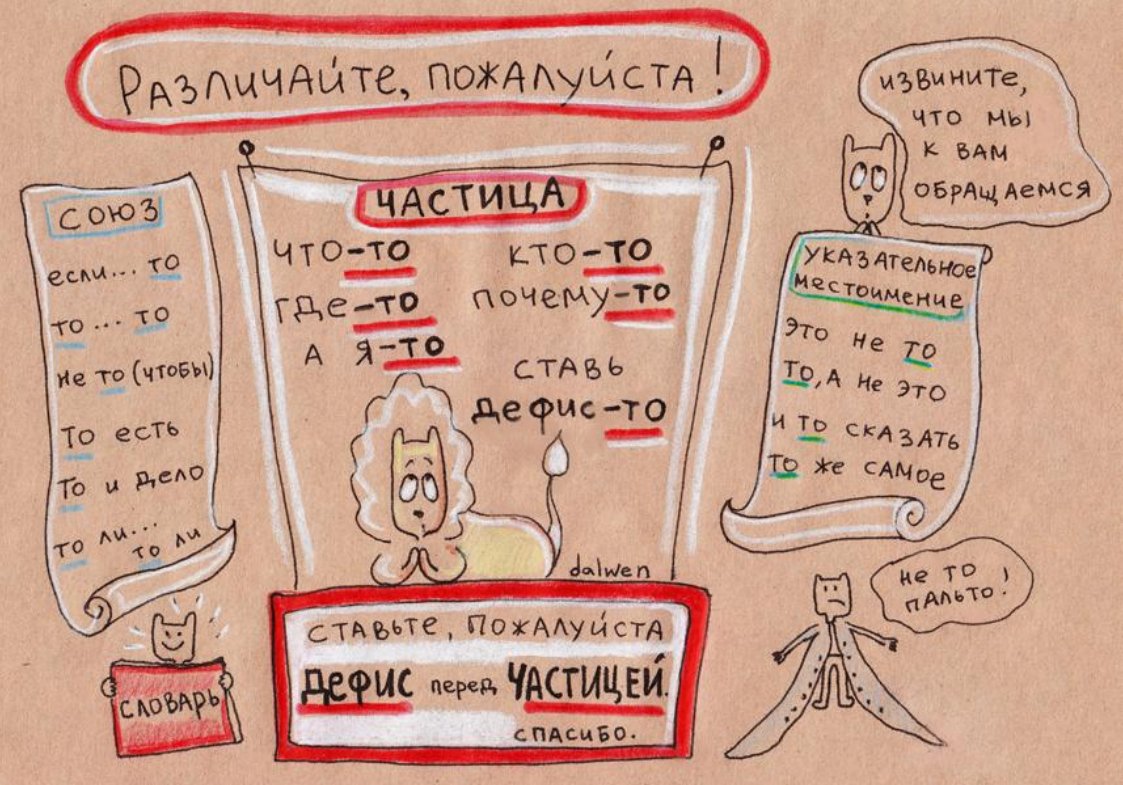 Различайте, пожалуйста!
союз
если... то
то... то
не то (чтобы)
то есть
то и дело
то ли...
то ли
словарь
частица
что-то
кто-то
где-то
почему-то
а я-то
ставь
дефис-то
dalwen
ставьте, пожалуйста
дефис перед частицей.
спасибо.
извините,
что мы
к вам
обращаемся
указательное
местоимение
это не то
то, а не это
и то сказать
то же самое
не то
пальто!